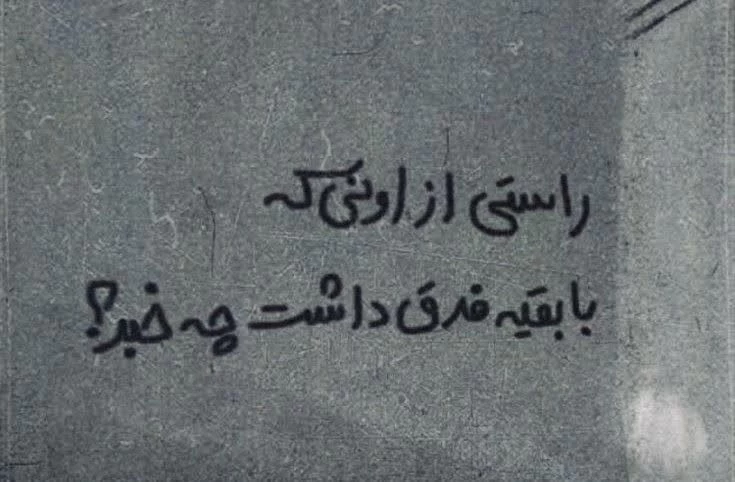 راستی از اونی که
با بقیه فرق داشت چه خبر؟